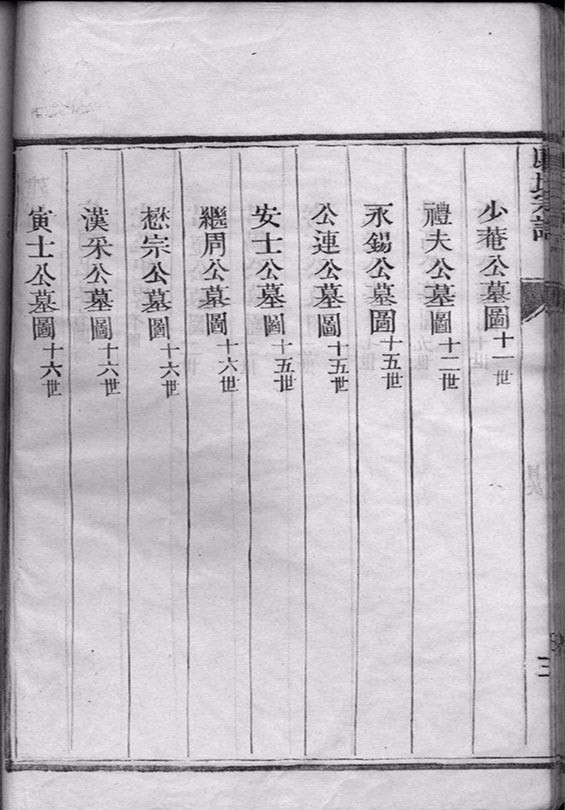 少菴公墓圖十一世
禮夫公墓圖十二世
永錫公墓圖十五世
公連公墓圖十五世
安士公墓圖十五世
繼周公墓圖十六世
懋宗公墓圖十六世
漢采公墓圖十六世
寅士公墓圖十六世
三